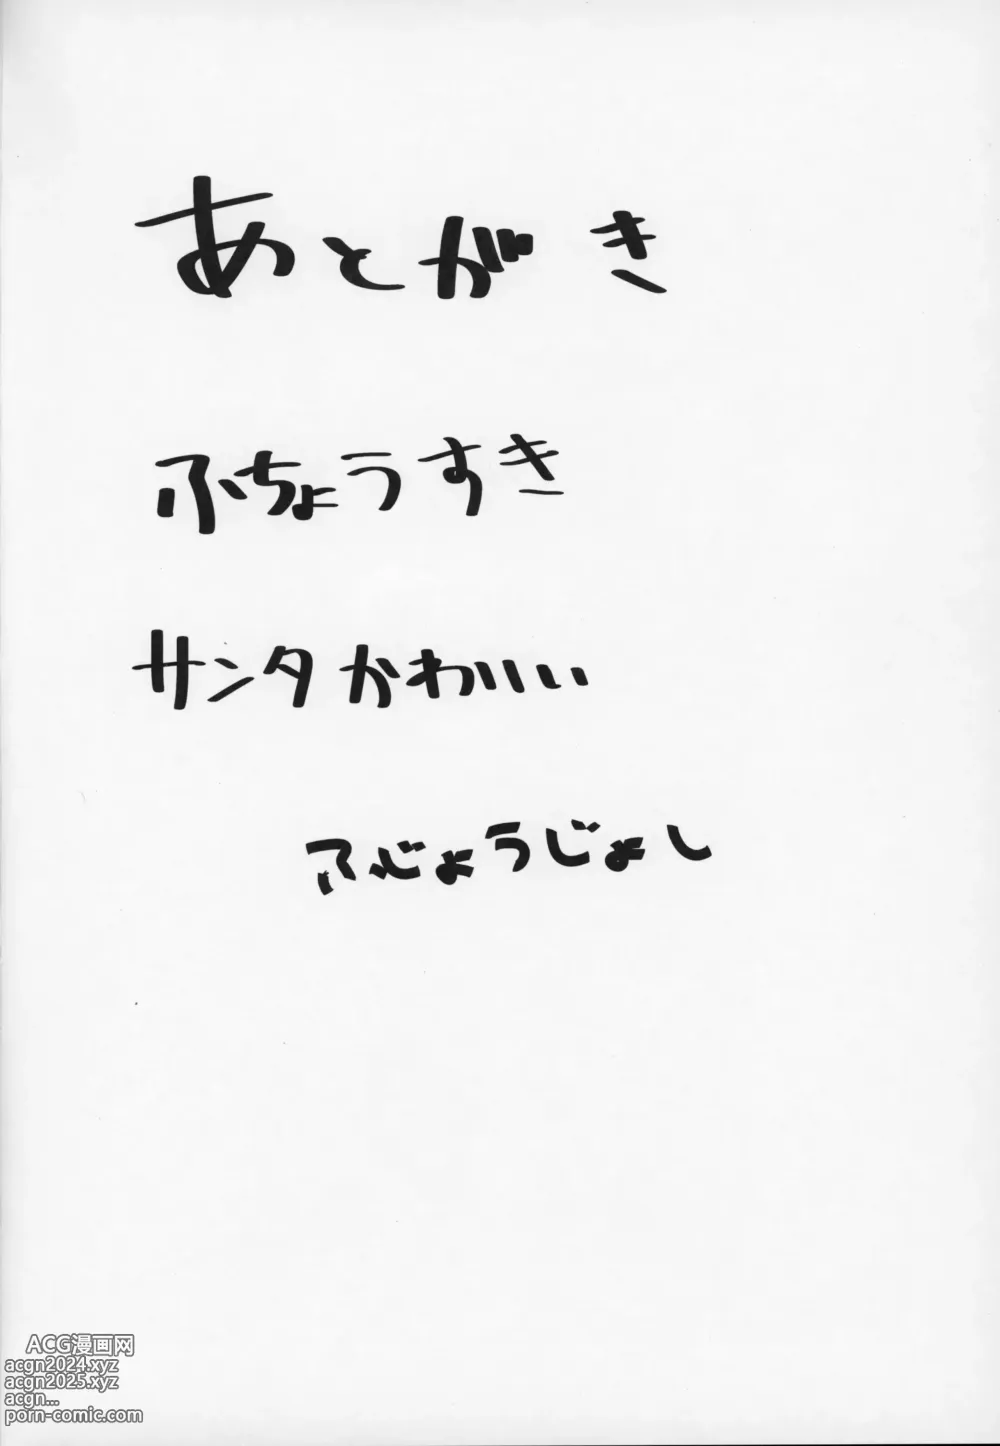 あとがき
ふちょうすき
サンタかわいい
ふじょうじょし
ACG漫画网
acgn2024.xyz
acgn2025.xyz
acgn...
porn-comic.com